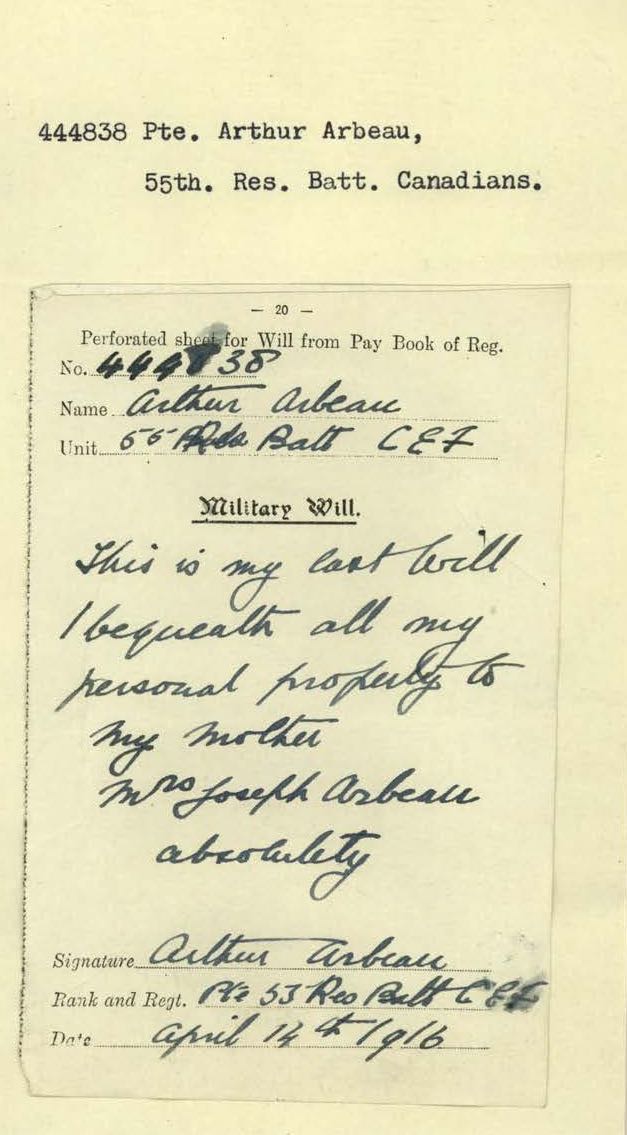 444838 Pte. Arthur Arbeau,
55th. Res. Batt. Canadians.
— 20 —
Perforated sheet for Will from Pay Book of Reg.
No. 444838
Name Arthur Arbeau
Unit 55 Res Batt C E F
Military Will.
This is my last Will
I bequeath all my
personal property to
my mother
Mrs Joseph Arbeau
absolutely
Signature Arthur Arbeau
Rank and Regt. Pte 53 Res Batt C E F
Date April 14th 1916